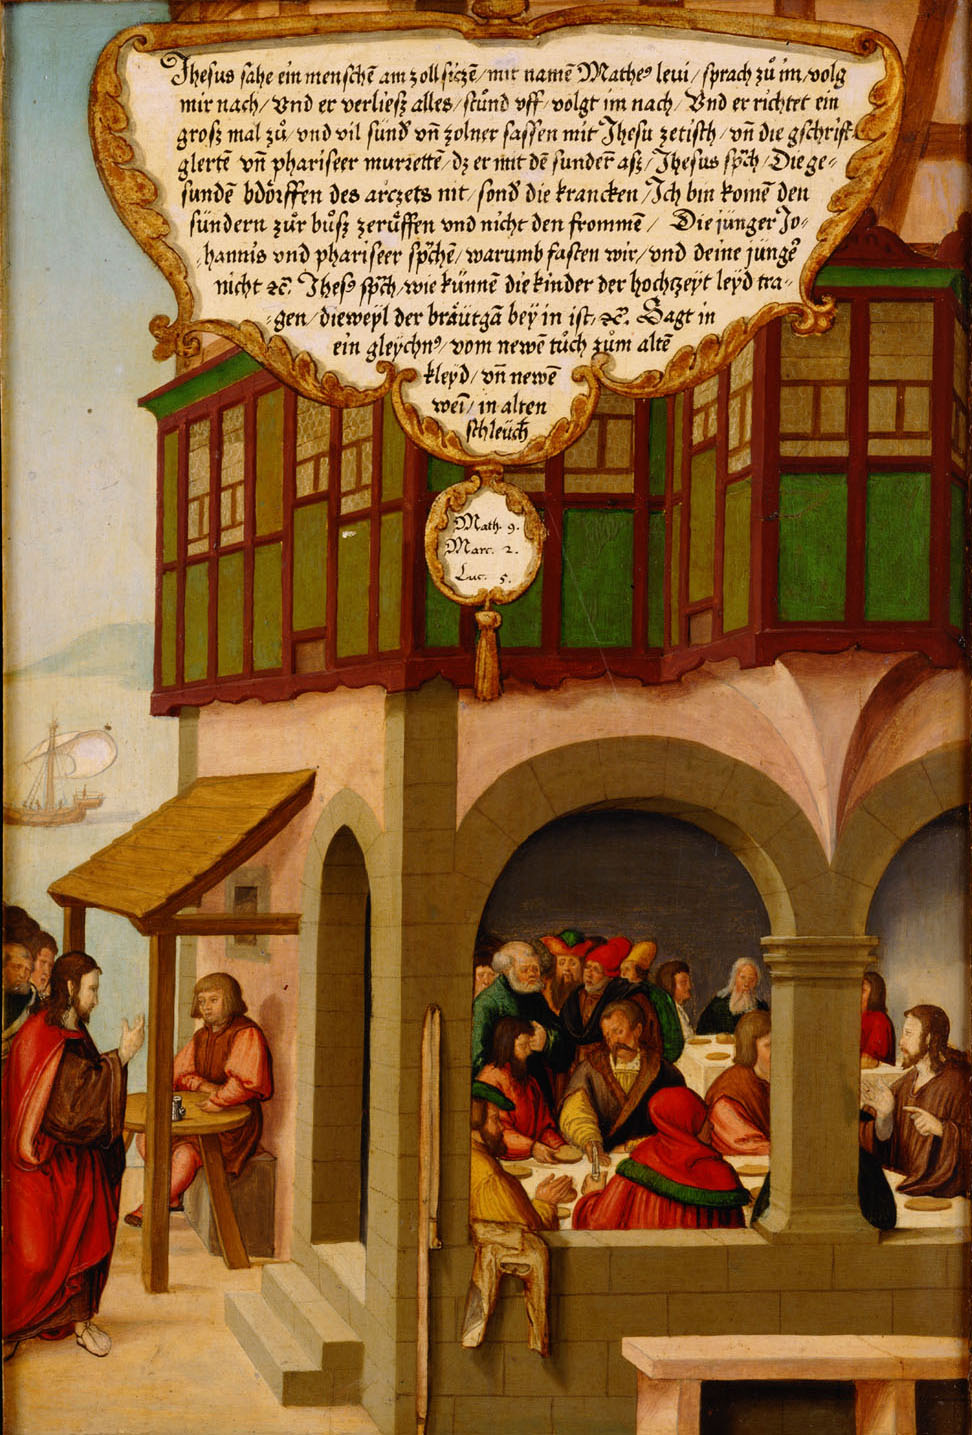 Jhesus sahe ein menschē am zoll sitzē/ mit namē Matheꝰ levi/ sprach zů im/ volg
mir nach/ Vnd er verliesz alles/ stůnd vff/ volgt im nach/ Vnd er richtet ein
grosz mal zů/ vnd vil sünd̄ vn̄ zolner sassen mit Jhesu zetisch/ vn̄ die gschrift
glertē vn̄ phariseer murretē/ dz er mit dē sunder̄ asz/ Jhesus sp̄ch/ Die ge-
sundē bdo̎rffen des arczets nit/ sond̄ die krancken/ Ich bin komē den
sündern zůr bůsz zerůffen vnd nicht den frommē/ Die jünger Jo-
hannis vnd phariseer sp̄chē/ warumb fasten wir/ vnd deine jüngeꝰ
nicht ꝛc̄. Jhesꝰ sp̄ch/ wie künnē die kinder der hochtzeyt leyd tra-
gen/ dieweyl der breütgā bey in ist/ ꝛc̄. Sagt in
ein gleychnꝰ/ vom newē tůch zům altē
kleyd/ vn̄ newē
weī/ in alten
schleüch̄
Math. 9.
Marc. 2.
Luc. 5.